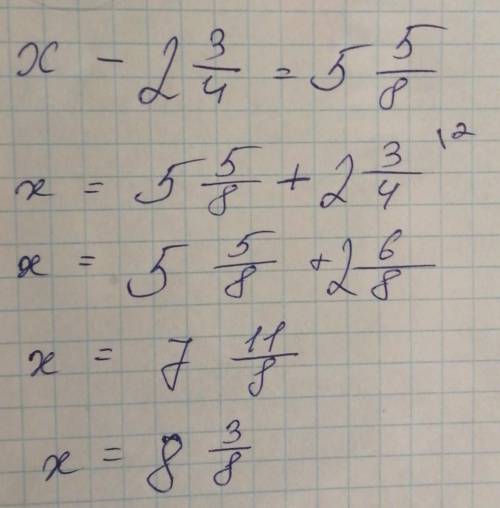 x - 2 3/4 = 5 5/8
x = 5 5/8 + 2 3/4 \2
x = 5 5/8 + 2 6/8
x = 7 11/8
x = 8 3/8